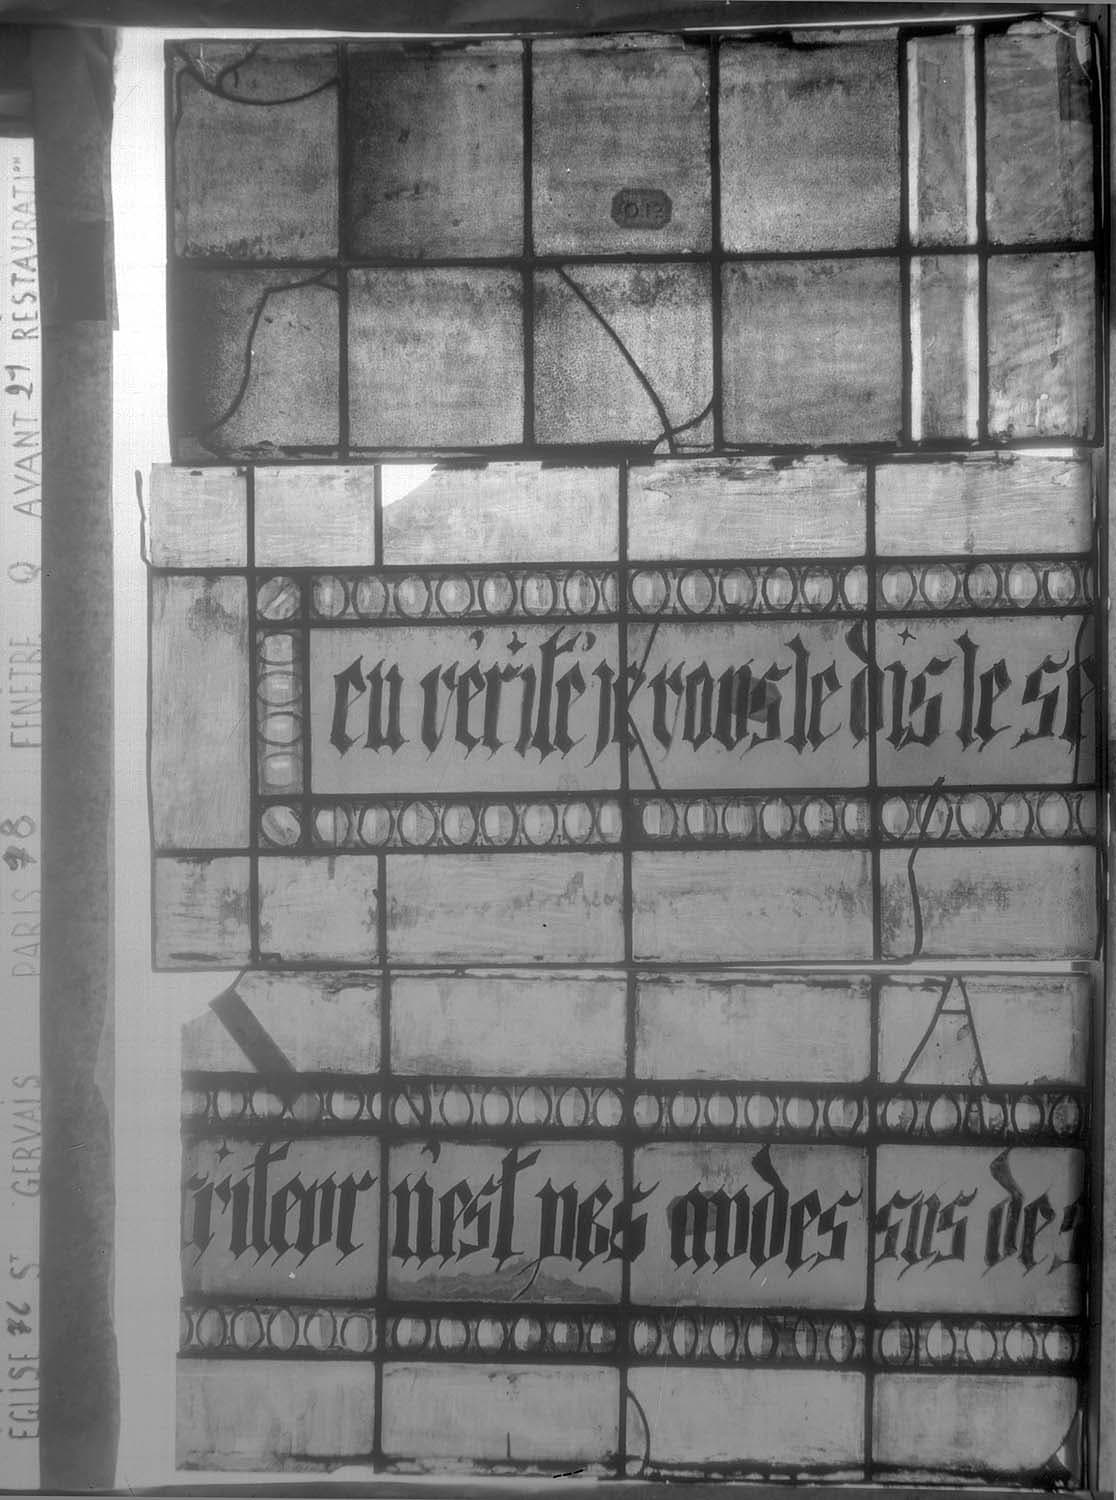 EGLISE 76 ST GERVAIS PARIS 78 FENETRE Q AVANT 21 RESTAURATION
en vérité je vous le dis le se
riteur n'est pas au des sus des